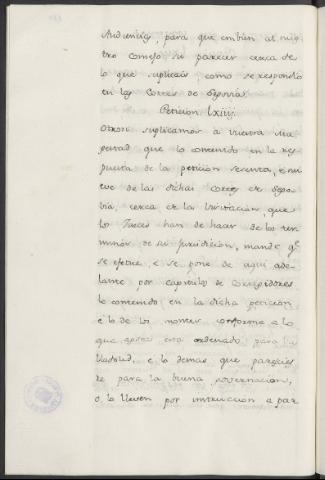 Audiencias, para que embien al nues
tro consejo su parecer cerca de
lo que suplicais, como se respondio
en las Cortes de Segovia.
Peticion lxiiij.
Otrosi suplicamos à vuestra Ma
gestad que lo contenido en la res
puesta de la peticion sesenta, è nu
eve de las dichas Cortes de Sego
bia, cerca de la visitacion, que
los Jueces han de hacer de los ter
minos de su jurisdicion, mande qe
se efetue, e se pone de aqui ade
lante por capitulos de Corregidores
lo contenido en la dicha peticion
è lo de los montes conforme a lo
que agora esta ordenado para
Valladolid, e lo demas que parecie
re para la buena governacion,
ò lo lleven por instruccion a par